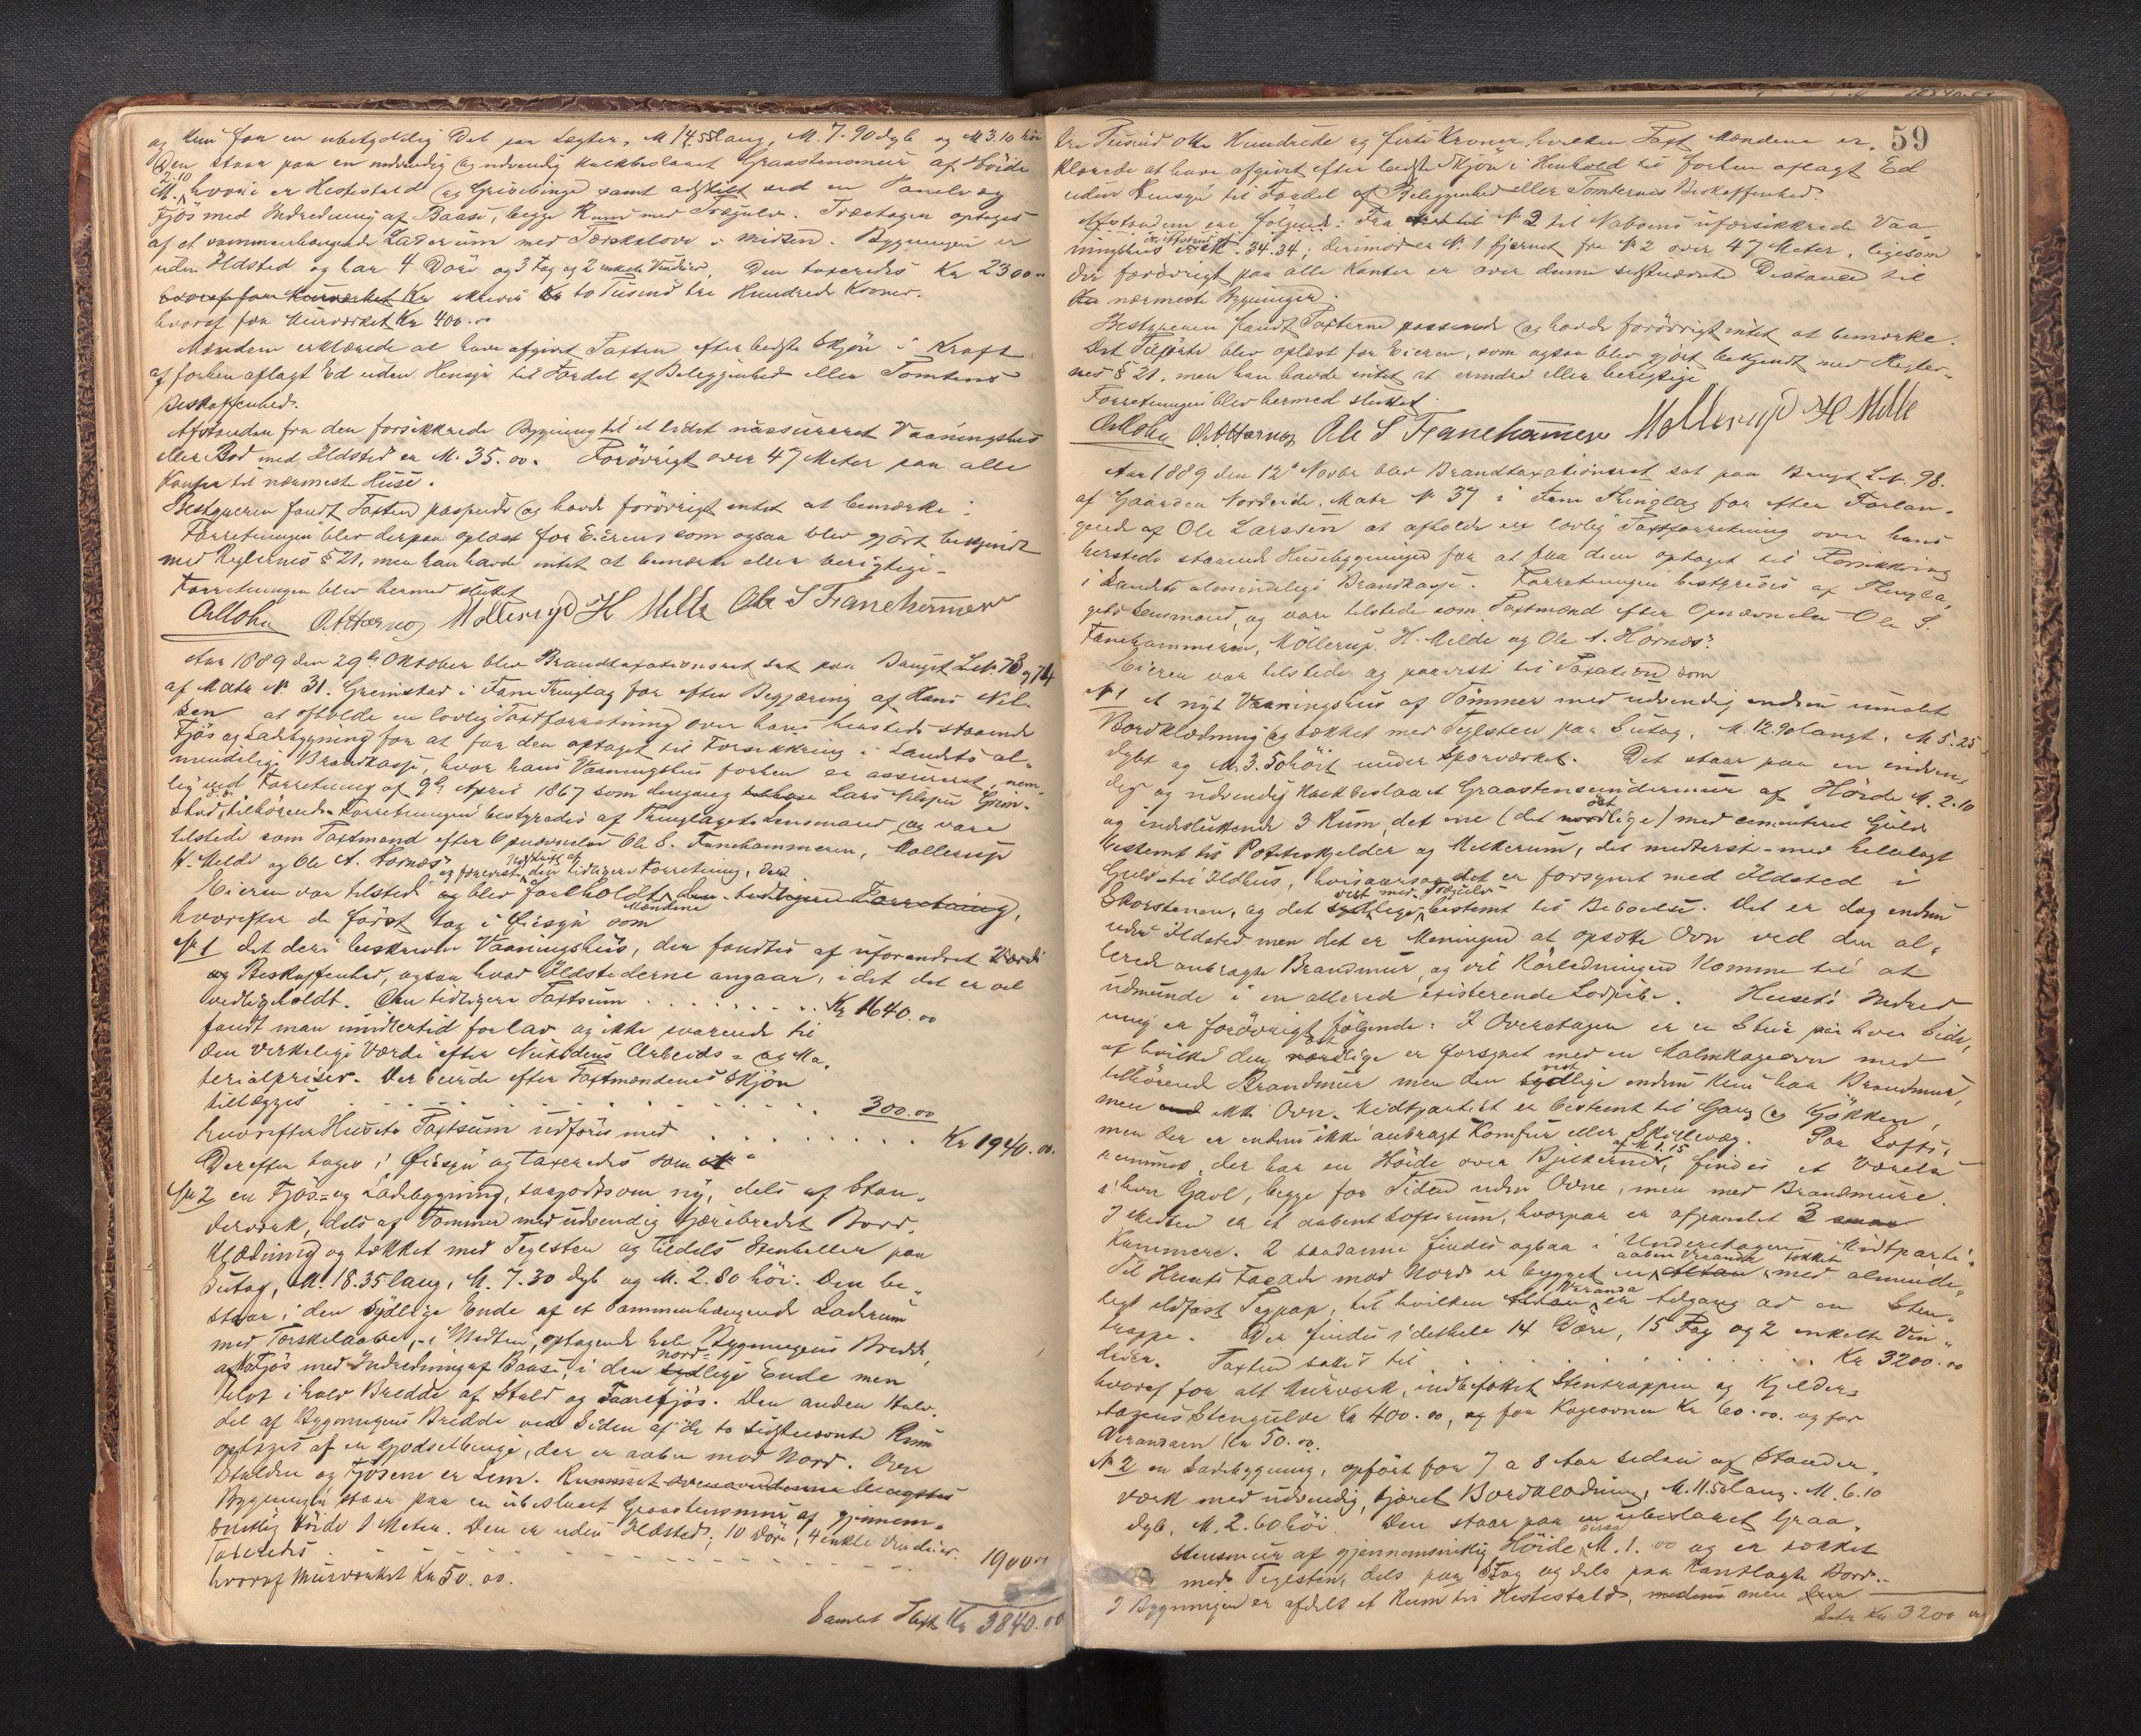 og kun for en ubetydelig Del paa Sægter, M 14.55 lang, M. 7.90 dyb og M 3.10 høi
Den staar paa en indvendig og udvendig kalkbeslaaet Graastensmuur af Høide
M. 2.10 hvori er Hestestald og Grisebinge samt adskilt ved en Panelvæg
Fjös med Indredning af Baase, begge Rum med Trægulv. Træetagen optages
af et sammenhængende Laderum med Tærskelove i Midten. Bygningen er
uden Ildsted og har 4 Döre og 3 Fag og 2 enkelte Vinduer. Den taxeredes Kr 2300.00
hvoraf for Murværket Kr skriver Kr to Tusind tre Hundrede Kroner.
hvoraf for Murværket Kr 400.00
Mændene erklærede at have afgivet Taxten efter bedste Skjön i Kraft
af forhen aflagt Ed uden Hensyn til Fordel af Beliggenhed eller Tomtens
Beskaffenhed.
Afstanden fra den forsikkrede Bygning til et lidet uassureret Vaaningshus
eller Bod med Ildsted er M. 35.00. Forövrigt over 47 Meter paa alle
Kanter til nærmeste Huse.
Bestyreren fandt Taxten passende og havde forövrigt intet at bemærke.
Forretningen blev derpaa oplæst for Eieren som ogsaa blev gjört bekjendt
med Reglernes § 21, men han havde intet at bemærke eller berigtige.
Forretningen blev hermed sluttet
O. A. Hornes Möllerup H Milde Ole S Fanehammer
Aar 1889 den 29de Oktober blev Brandtaxationsret sat paa Bruget L.No. 73 og 74
af Matr No. 31. Greinstad i Fane Thinglag for efter Begjæring af Hans Nil-
sen at afholde en lovlig Taxtforretning over hans hersteds staaende
Fjös og Ladebygning for at faa den optaget til Forsikkring i Landets al-
mindelige Brandkasse, hvor hans Vaaningshus forhen er assureret, nem-
lig ved Forretning af 9de April 1867 som dengang Lars Nilsen Grim-
stad tilhörende. Forretningen bestyredes af Thinglagets Lensmand og vare
tilstede som Taxtmænd efter Opnævnelse Ole S. Fanehammeren, Mollerup
H. Milde og Ole A. Hornæs
Eieren var tilstede og blev foreholdt den tidligere Forretning,
hvorefter de först tog i Öiesyn som
No 1 det deri beskrevne Vaaningshus, der fandtes af uforandret Værdi
og Beskaffenhed, ogsaa hvad Ildstederne angaar, idet det er vel
vedligeholdt. Den tidligere Taxtsum . . . . . . . Kr 1640.00
fandt man imidlertid for lav og ikke svarende til
den virkelige Værdi efter Nutidens Arbeids- og Ma-
terialpriser. Der burde efter Taxtmændenes Skjön
tillægges . . . . . . . . . . . 300.00
hvorefter Husets Taxtsum udföres med . . . . . . . Kr 1940.00.
Derefter toges i Öiesyn og taxeredes som
No 2 en Fjös- og Ladebygning, saagodtsom ny, dels af Stan-
derværk, dels af Tømmer med udvendig tjærebredet Bord-
klædning og tækket med Teglsten og tildels Stenheller paa
Sutag, M. 18.35 lang, M. 7.30 dyb og M. 2.80 höi. Den be-
staar i den sydlige Ende af et sammenhængende Laderum
med Tærskelaave i Midten, optagende hele Bygningens Bredde,
Fjös med Indredning af Baase, i den nordlige Ende men
blot i halv Bredde af Stald og Faarefjös. Den anden Halv-
del af Bygningens Bredde ved Siden af de to sidstnævnte Rum
optages af en Gjödselbinge, der er aaben mod Nord. Over
Stalden og Fjösene er Lem. Rummet
Bygningen staar paa en ubeslaaet Graastensmur af gjennem-
snitlig Höide 1 Meter. Den er uden Ildsted; 10 Döre, 4 enkle Vinduer.
Taxeredes . . . . . . . . . . 1900.00
hvoraf Murværket Kr 50.00.
Samlet Taxt Kr 3840.00
59
tre Tusind otte Hundrede og firti Kroner, hvilken Taxt Mændene er-
klærede at have afgivet efter bedste Skjön i Henhold til forhen aflagt Ed
uden Hensyn til Fordel af Beliggenhed eller Tomternes Beskaffenhed.
Afstandene ere følgende: Fra No 2 til Naboens uforsikkrede Vaa-
ningshus er M. 34.34; derimod er No. 1 fjernet fra No 2 over 47 Meter, ligesom
der forövrigt paa alle Kanter er over denne sidstnævnte Distance til
nærmeste Bygninger.
Bestyreren fandt Taxterne passende og havde forövrigt intet at bemærke.
Det Tilförte blev oplæst for Eieren, som ogsaa blev gjört bekjendt med Regler-
nes § 21, men han havde intet at erindre eller berigtige
Forretningen blev hermed sluttet.
O. A. Hornes Ole S Fanehammer Möllerup H Milde
Aar 1889 den 12te Novbr blev Brandtaxationsret sat paa Bruget L.No. 98.
af Gaarden Nordeide, Matr No 37 i Fane Thinglag for efter Forlan-
gende af Ole Larsen at afholde en lovlig Taxtforretning over hans
hersteds staaende Husebygninger for at faa dem optaget til Forsikkring
i Landets almindelige Brandkasse. Forretningen bestyredes af Thingla-
gets Lensmand, og vare tilstede som Taxtmænd efter Opnævnelse Ole S.
Fanehammeren, Möllerup, H. Milde og Ole A. Hornæs.
Eieren var tilstede og paaviste til Taxation som
No 1 et nyt Vaaningshus af Tömmer med udvendig endnu umalet
Bordklædning og tækket med Teglsten paa Sutag, M. 12.90 langt, M 5.25
dybt og M. 3.50 höit under Sparværket. Det staar paa en indven-
dig og udvendig kalkbeslaaet Graastensundermur af Höide M. 2.10
og indsluttende 3 Rum, det ene (det östlige) med cementeret Gulv
bestemt til Potteskjelder og Melkerum, det midterste med hellelagt
Gulv til Ildhus, hvisaarsag det er forsynet med Ildsted i
Skorstenen, og det vestlige med Trægulv bestemt til Beboelse. Det er dog endnu
uden Ildsted men det er Meningen at opsætte Ovn ved den al-
lerede anbragte Brandmur, og vil Rörledningen komme til at
udmunde i en allerede existerende Lodpibe. Husets Indred
ning er forövrigt fölgende: I Overetagen er en Stue paa hver Side,
af hvilke den östlige er forsynet med en Halmkageovn med
tilhörende Brandmur men den vestlige endnu kun har Brandmur,
men ikke Ovn. Midtpartiet er bestemt til Gang og Kjökken,
men der er endnu ikke anbragt Komfur eller Skillevæg. Paa Lofts-
rummet, der har en Höide over Bjelkerne af M 1.15, findes et Værelse
i hver Gavl, begge for Tiden uden Ovne, men med Brandmure.
I Midten er et aabent Loftsrum, hvorpaa er afpanelet 2
Kammere. 2 saadanne findes ogsaa i Underetagens Midtparti.
Til Husets Facade mod Nord er bygget en aaben Veranda tækket med alminde-
ligt ildfast Tagpap, til hvilken Veranda er Adgang ad en Sten-
trappe. Der findes i det hele 14 Döre, 15 Fag og 2 enkelte Vin-
duer. Taxten sattes til . . . . . . . . . . Kr 3200.00
hvoraf for alt Murværk, indbefattet Stentrappen og Kjelder-
etagens Stengulve Kr 400.00, og for Kogeovnen Kr 60.00. og for
Verandaen Kr 50.00.
No 2 en Ladebygning, opfört for 7 a 8 Aar siden af Stander-
værk med udvendig, tjæret Bordklædning, M. 11.50 lang. M. 6.10
dyb, M. 2.60 höi. Den staar paa en ubeslaaet Graa-
stensmur af gjennemsnitlig Höide M. 1.00 og er tækket
med Teglsten, dels paa Stag og dels paa kantlagte Bord.
I Bygningen er afdelt et Rum til Hestestald, men
Latr. Kr 3200